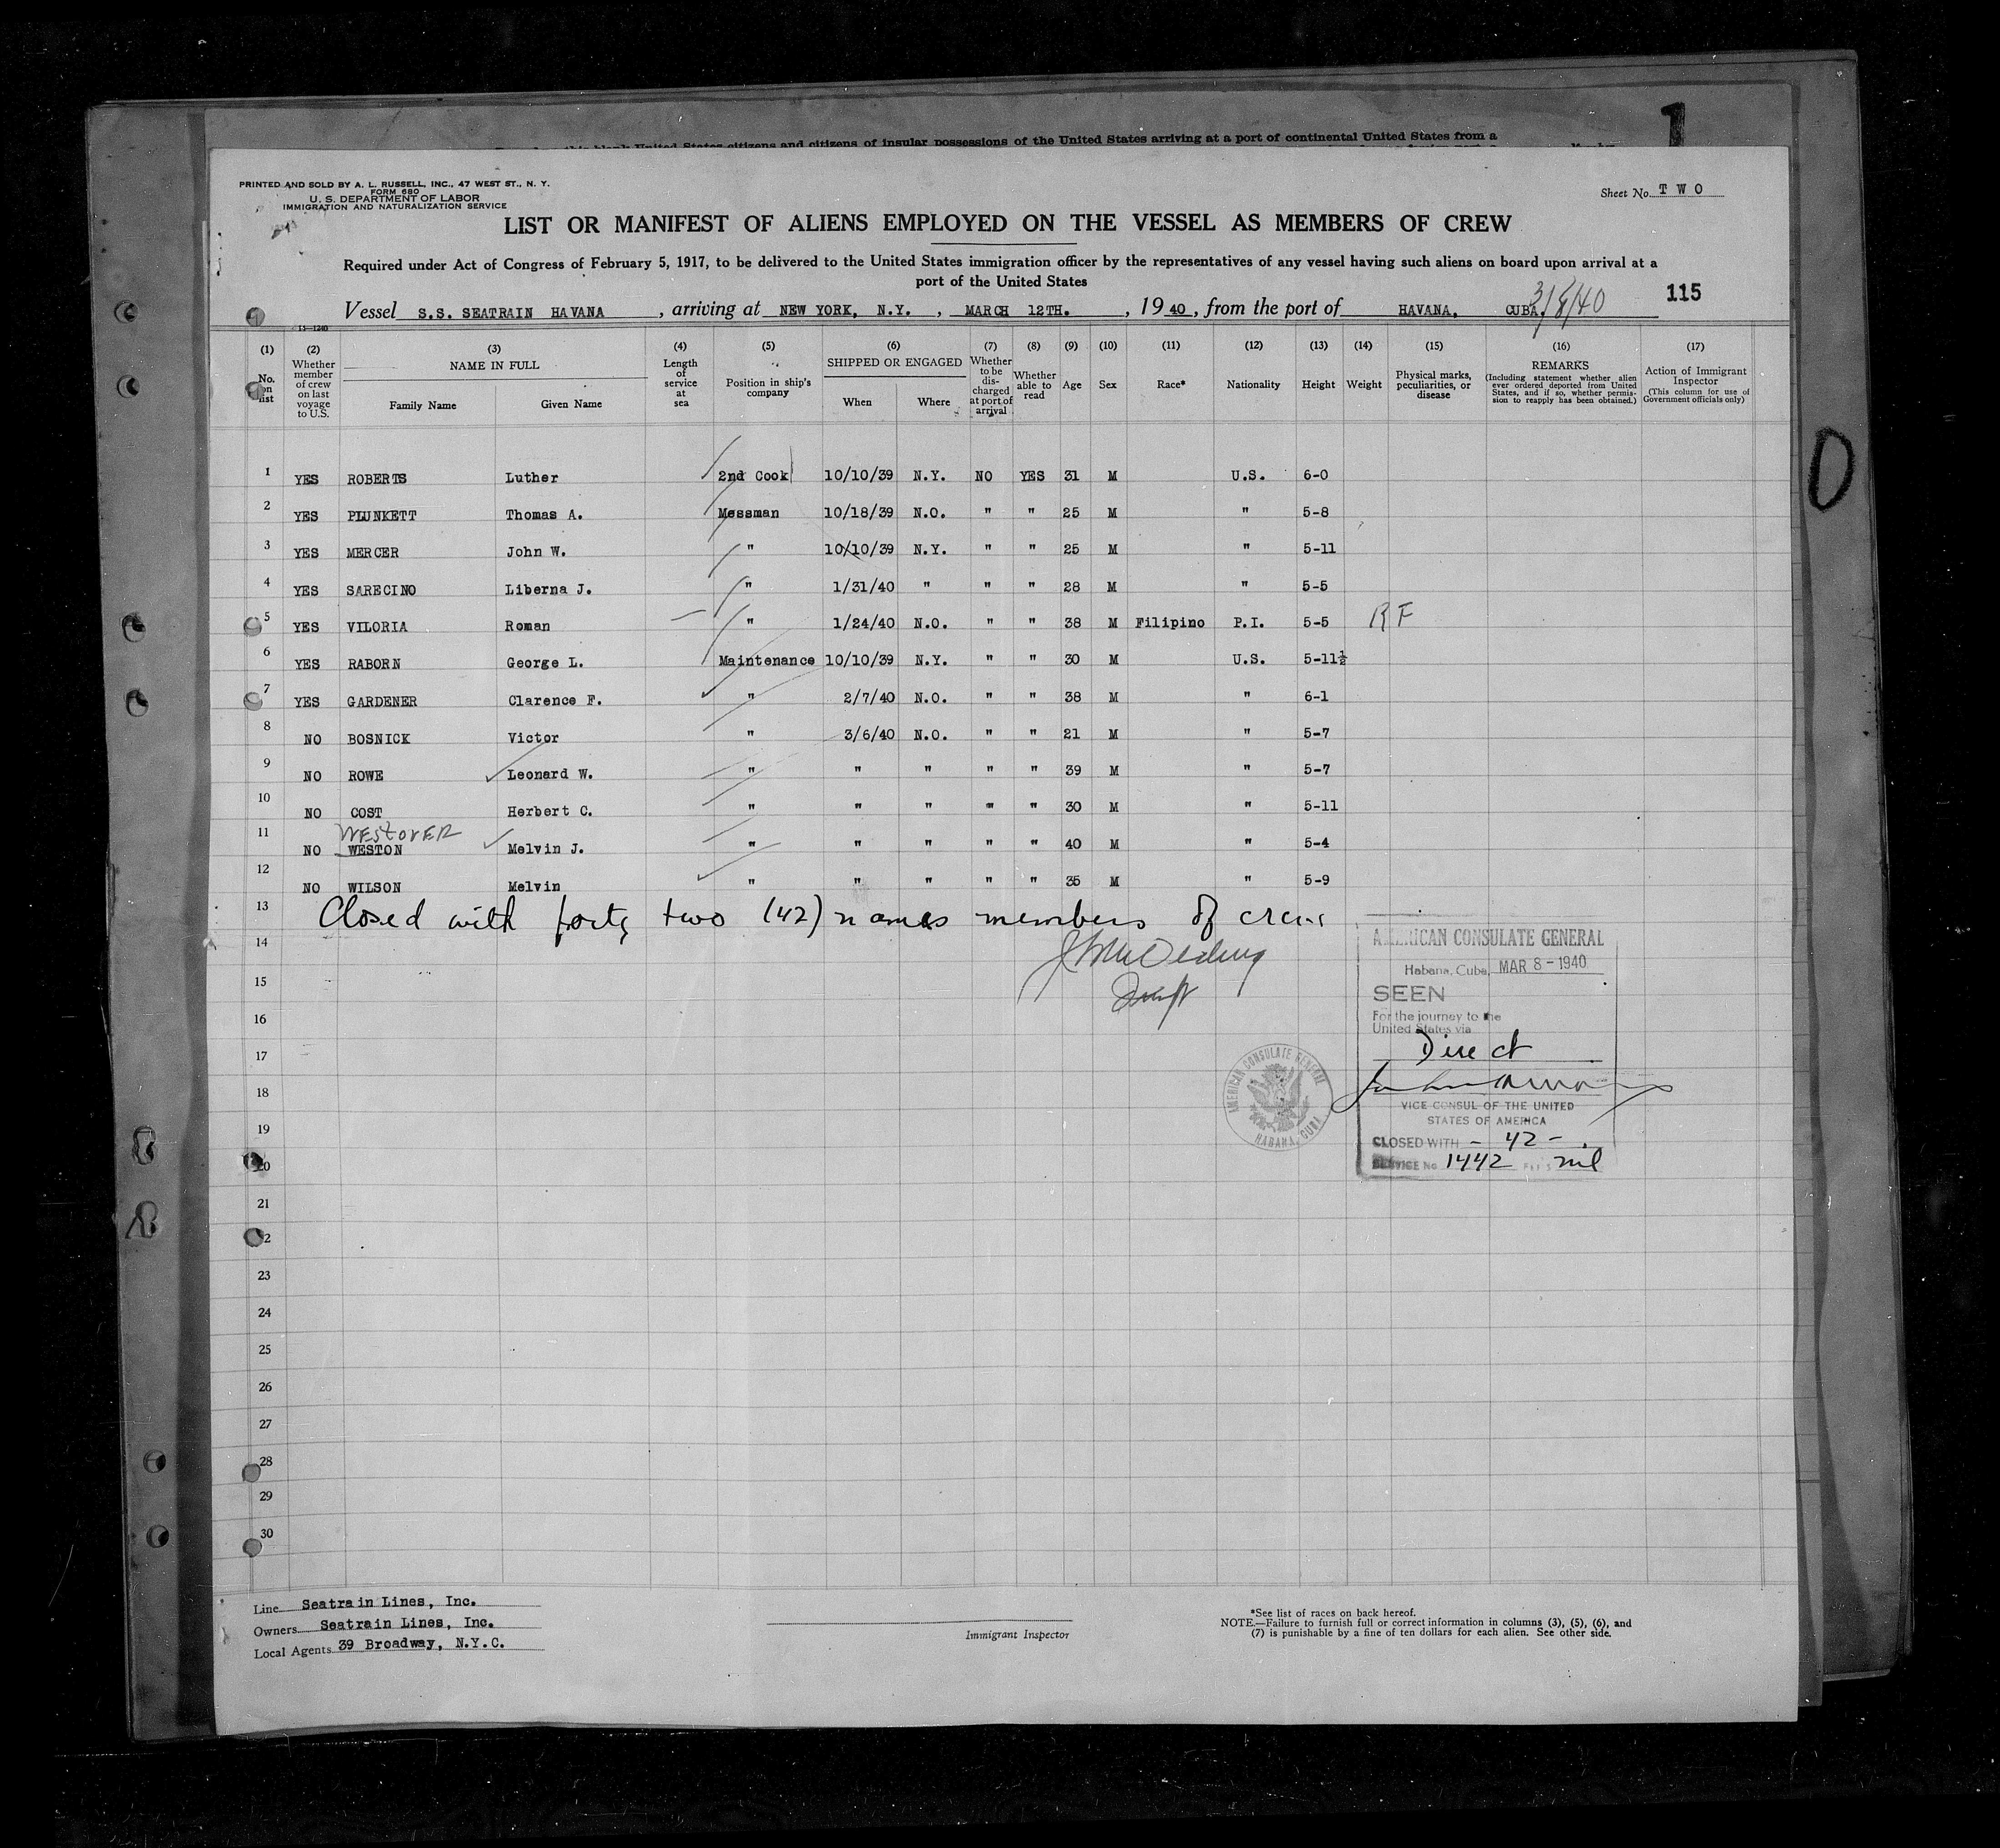 1
this blank United States citizens and citizens of insular possessions of the United States arriving at a port of continental United States from a
PRINTED AND SOLD BY A. L. RUSSELL, INC., 47 WEST ST., N. Y.
FORM 680
U. S. DEPARTMENT OF LABOR
IMMIGRATION AND NATURALIZATION SERVICE
Sheet No. TWO
LIST OR MANIFEST OF ALIENS EMPLOYED ON THE VESSEL AS MEMBERS OF CREW
Required under Act of Congress of February 5, 1917, to be delivered to the United States immigration officer by the representatives of any vessel having such aliens on board upon arrival at a
port of the United States
3/8/40
115
Vessel S.S. SEATRAIN HAVANA, arriving at NEW YORK, N.Y., MARCH 12TH., 1940, from the port of HAVANA, CUBA.
13-1240
(1) No. on list
(2) Whether member of crew on last voyage to U.S.
(3) NAME IN FULL Family Name Given Name
(4) Length of service at sea
(5) Position in ship's company
(6) SHIPPED OR ENGAGED When Where
(7) Whether to be discharged at port of arrival
(8) Whether able to read
(9) Age
(10) Sex
(11) Race*
(12) Nationality
(13) Height
(14) Weight
(15) Physical marks, peculiarities, or disease
(16) REMARKS (Including statement whether alien ever ordered deported from United States, and if so, whether permission to reapply has been obtained.)
(17) Action of Immigrant Inspector (This column for use of Government officials only)
1 YES ROBERTS Luther 2nd Cook 10/10/39 N.Y. NO YES 31 M U.S. 6-0
2 YES PLUNKETT Thomas A. Messman 10/18/39 N.O. " " 25 M " 5-8
3 YES MERCER John W. " 10/10/39 N.Y. " " 25 M " 5-11
4 YES SARECINO Liberna J. " 1/31/40 " " " 28 M " 5-5
5 YES VILORIA Roman " 1/24/40 N.O. " " 38 M Filipino P.I. 5-5 RF
6 YES RABORN George L. Maintenance 10/10/39 N.Y. " " 30 M U.S. 5-11½
7 YES GARDENER Clarence F. " 2/7/40 N.O. " " 38 M " 6-1
8 NO BOSNICK Victor " 3/6/40 N.O. " " 21 M " 5-7
9 NO ROWE Leonard W. " " " " " 39 M " 5-7
10 NO COST Herbert C. " " " " " 30 M " 5-11
WESTOVER
11 NO WESTON Melvin J. " " " " " 40 M " 5-4
12 NO WILSON Melvin " " " " " 35 M " 5-9
13 Closed with forty two (42) names members of crew
14
15
16
17
18
19
20
21
22
23
24
25
26
27
28
29
30
AMERICAN CONSULATE GENERAL
Habana, Cuba, MAR 8 - 1940
SEEN
For the journey to the
United States via
Direct
VICE CONSUL OF THE UNITED
STATES OF AMERICA
CLOSED WITH - 42 - .
SERVICE No 1442 nil
AMERICAN CONSULATE GENERAL
HABANA, CUBA
0
Line Seatrain Lines, Inc.
Owners Seatrain Lines, Inc.
Local Agents 39 Broadway, N.Y.C.
Immigrant Inspector
*See list of races on back hereof.
NOTE.—Failure to furnish full or correct information in columns (3), (5), (6), and
(7) is punishable by a fine of ten dollars for each alien. See other side.